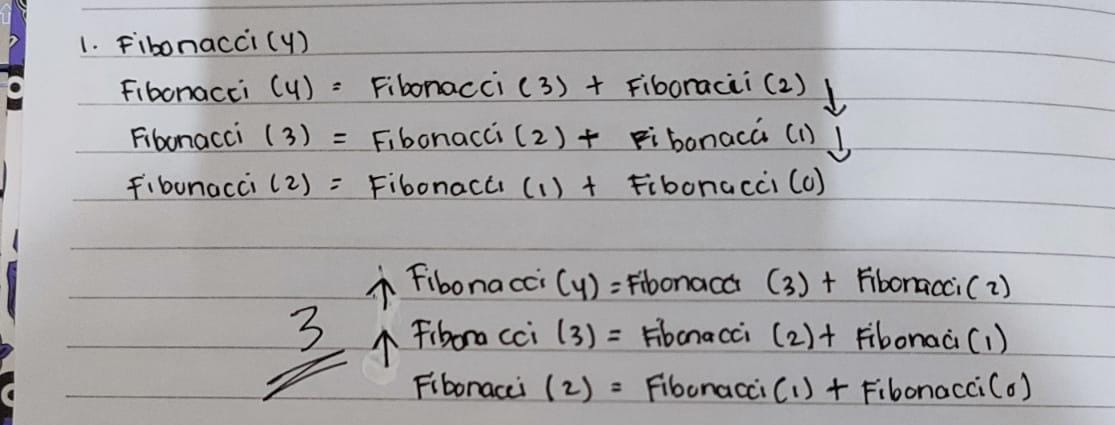 1. Fibonacci (4)
Fibonacci (4) = Fibonacci (3) + Fibonacci (2) ↓
Fibonacci (3) = Fibonacci (2) + Fibonacci (1) ↓
Fibonacci (2) = Fibonacci (1) + Fibonacci (0)
↑ Fibonacci (4) = Fibonacci (3) + Fibonacci (2)
3 ↑ Fibonacci (3) = Fibonacci (2) + Fibonaci (1)
Fibonacci (2) = Fibonacci (1) + Fibonacci (0)